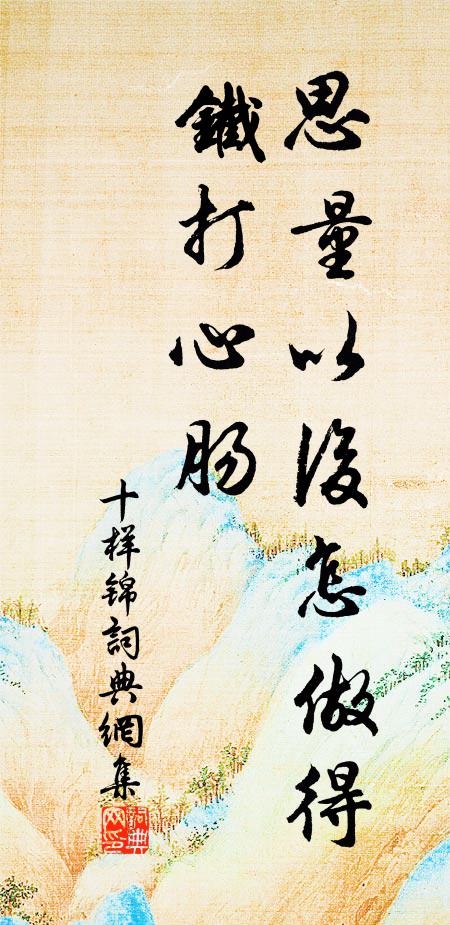 思量以後怎做得
鐵打心肠
十样锦詞典網集
詞典網印